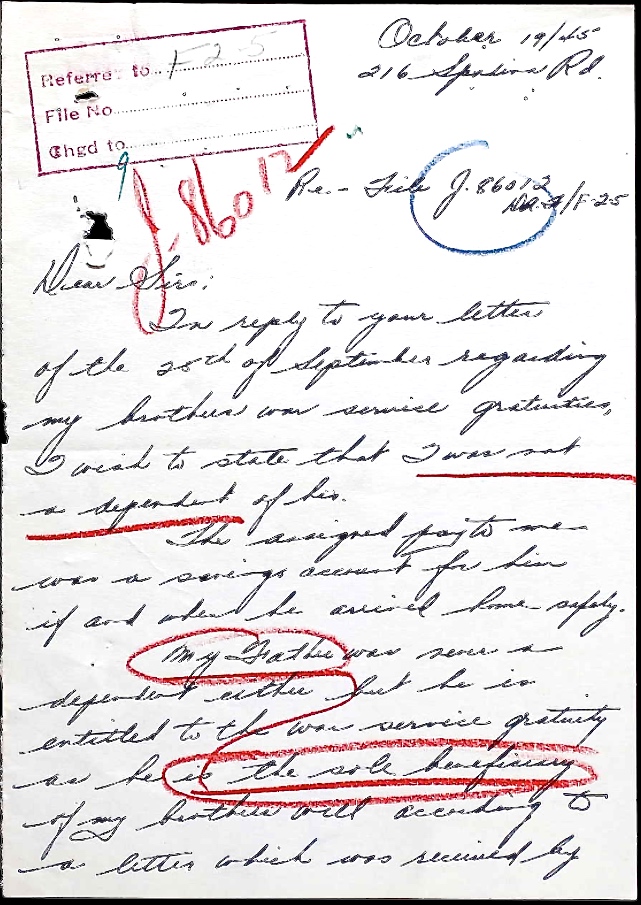 October 19/45
216 Spadina Rd.
Referred to F25
File No.
Chgd to
9
J-86012
Re - File J.86012
/F-25
Dear Sirs;
In reply to your letter
of the 28th of September regarding
my brothers war service gratuities,
I wish to state that I was not
a dependent of his.
The assigned pay to me
was a savings account for him
if and when he arrived home safely.
My Father was never a
dependent either but he is
entitled to the war service gratuity
as he is the sole beneficiary
of my brothers will according to
a letter which was received by